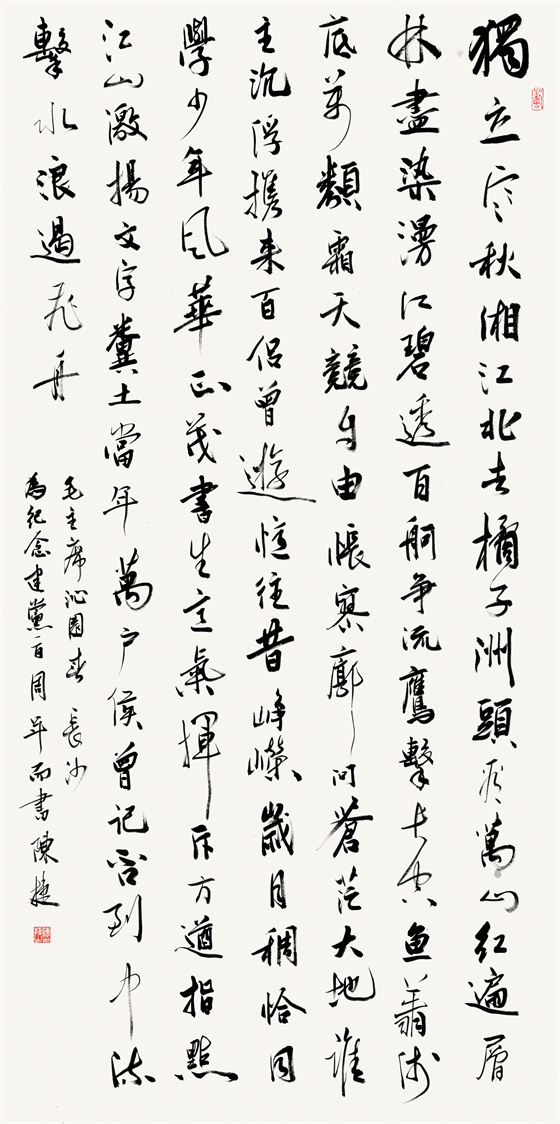 獨立寒秋湘江北去橘子洲頭看萬山紅遍層
林盡染漫江碧透百舸爭流鷹擊長空魚翔淺
底萬類霜天競自由悵寥廓問蒼茫大地誰
主沉浮携来百侣曾遊憶往昔崢嶸歲月稠恰同
學少年風華正茂書生意氣揮斥方遒指點
江山激揚文字糞土當年萬户侯曾记否到中流
擊水浪遏飛舟
毛主席沁園春 長沙
為紀念建黨百周年而書 陳捷